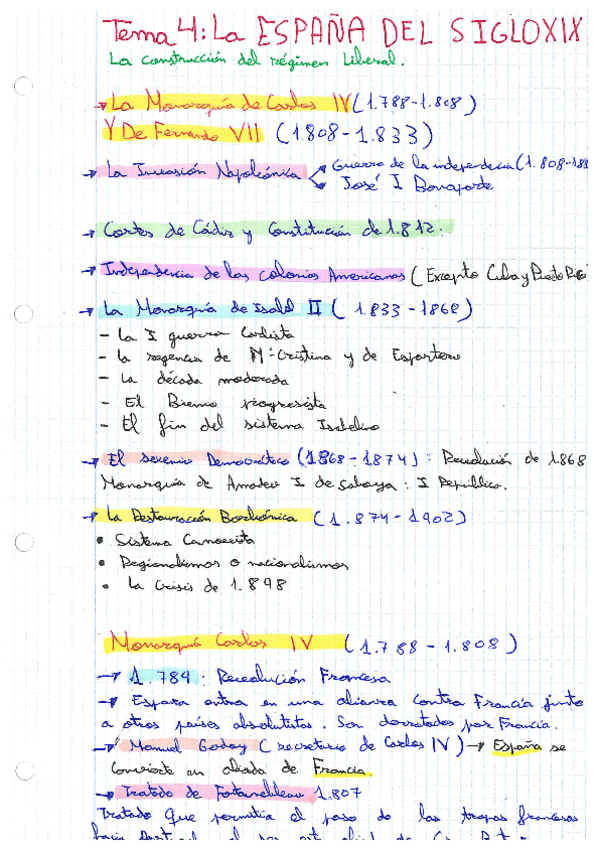 Tema 4: La ESPAÑA DEL SIGLO XIX
La construcción del régimen Liberal.
→ La Monarquía de Carlos IV (1.788-1.808)
Y De Fernando VII (1.808-1.833)
→ La Invasión Napoleónica
Guerra de la independencia (1.808-18
José I Bonaparte
→ Cortes de Cádiz y Constitución de 1.812.
→ Independencia de las colonias Americanas (Excepto Cuba y Puerto Rico
→ La Monarquía de Isabel II (1.833-1868)
- La I guerra Carlista
- La regencia de Mª Cristina y de Espartero
- La década moderada
- El Bienio progresista
- El fin del sistema Isabelino
→ El sexenio Democrático (1868-1874): Revolución de 1868
Monarquía de Amadeo I de Saboya: I República.
→ La Restauración Borbónica (1.874-1902)
• Sistema Canovista
• Regionalismos o nacionalismos
• La Crisis de 1.898
Monarquía Carlos IV (1.788-1.808)
→ 1.789: Revolución Francesa
→ España entra en una alianza contra Francia junto
a otros países absolutistas. Son derrotados por Francia.
→ Manuel Godoy (secretario de Carlos IV) → España se
convierte en aliada de Francia.
→ Tratado de Fontainebleau 1.807
Tratado que permitía el paso de las tropas francesas
hacia